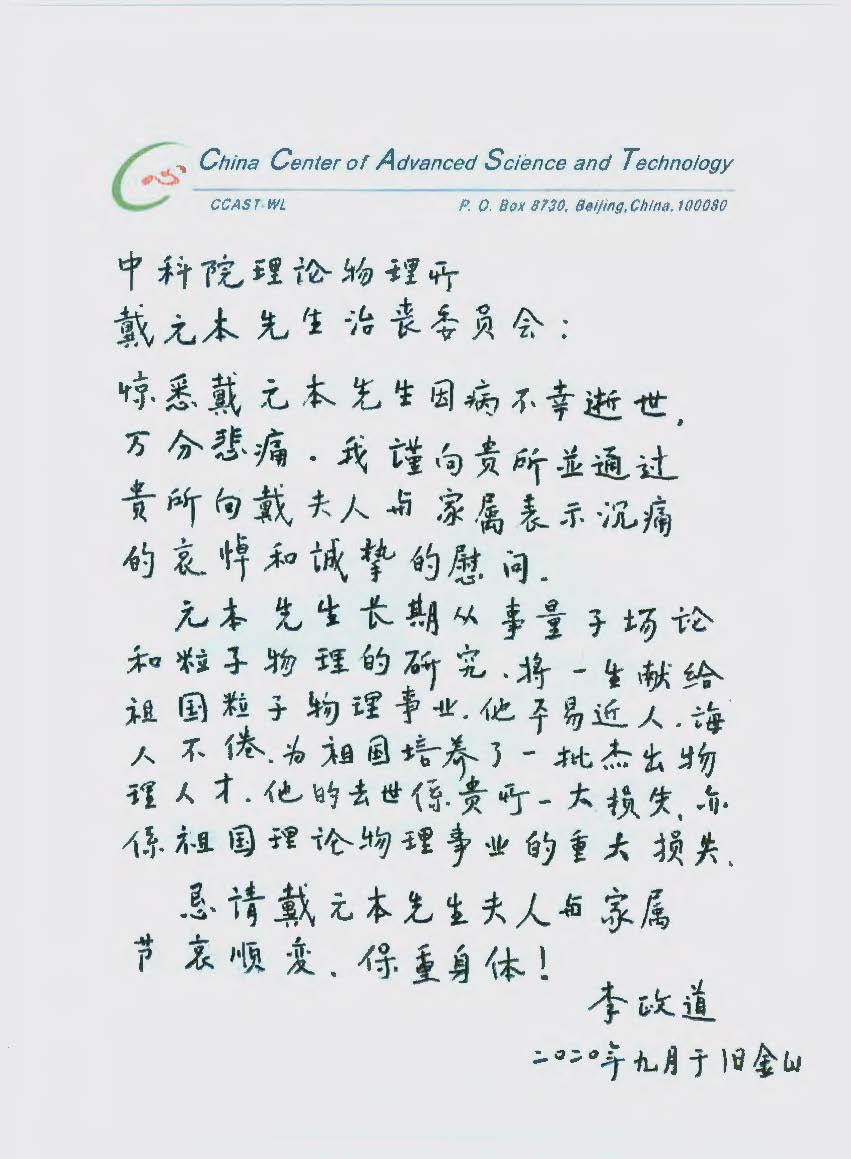 China Center of Advanced Science and Technology
CCAST-WL P. O. Box 8730, Beijing, China, 100080
中科院理论物理所
戴元本先生治丧委员会：
惊悉戴元本先生因病不幸逝世，
万分悲痛．我谨向贵所並通过
贵所向戴夫人与家属表示沉痛
的哀悼和诚挚的慰问．
元本先生长期从事量子场论
和粒子物理的研究．将一生献给
祖国粒子物理事业．他平易近人．誨
人不倦．为祖国培养了一批杰出物
理人才．他的去世係贵所一大损失．亦
係祖国理论物理事业的重大损失．
恳请戴元本先生夫人与家属
节哀顺变．保重身体！
李政道
二〇二〇年九月于旧金山